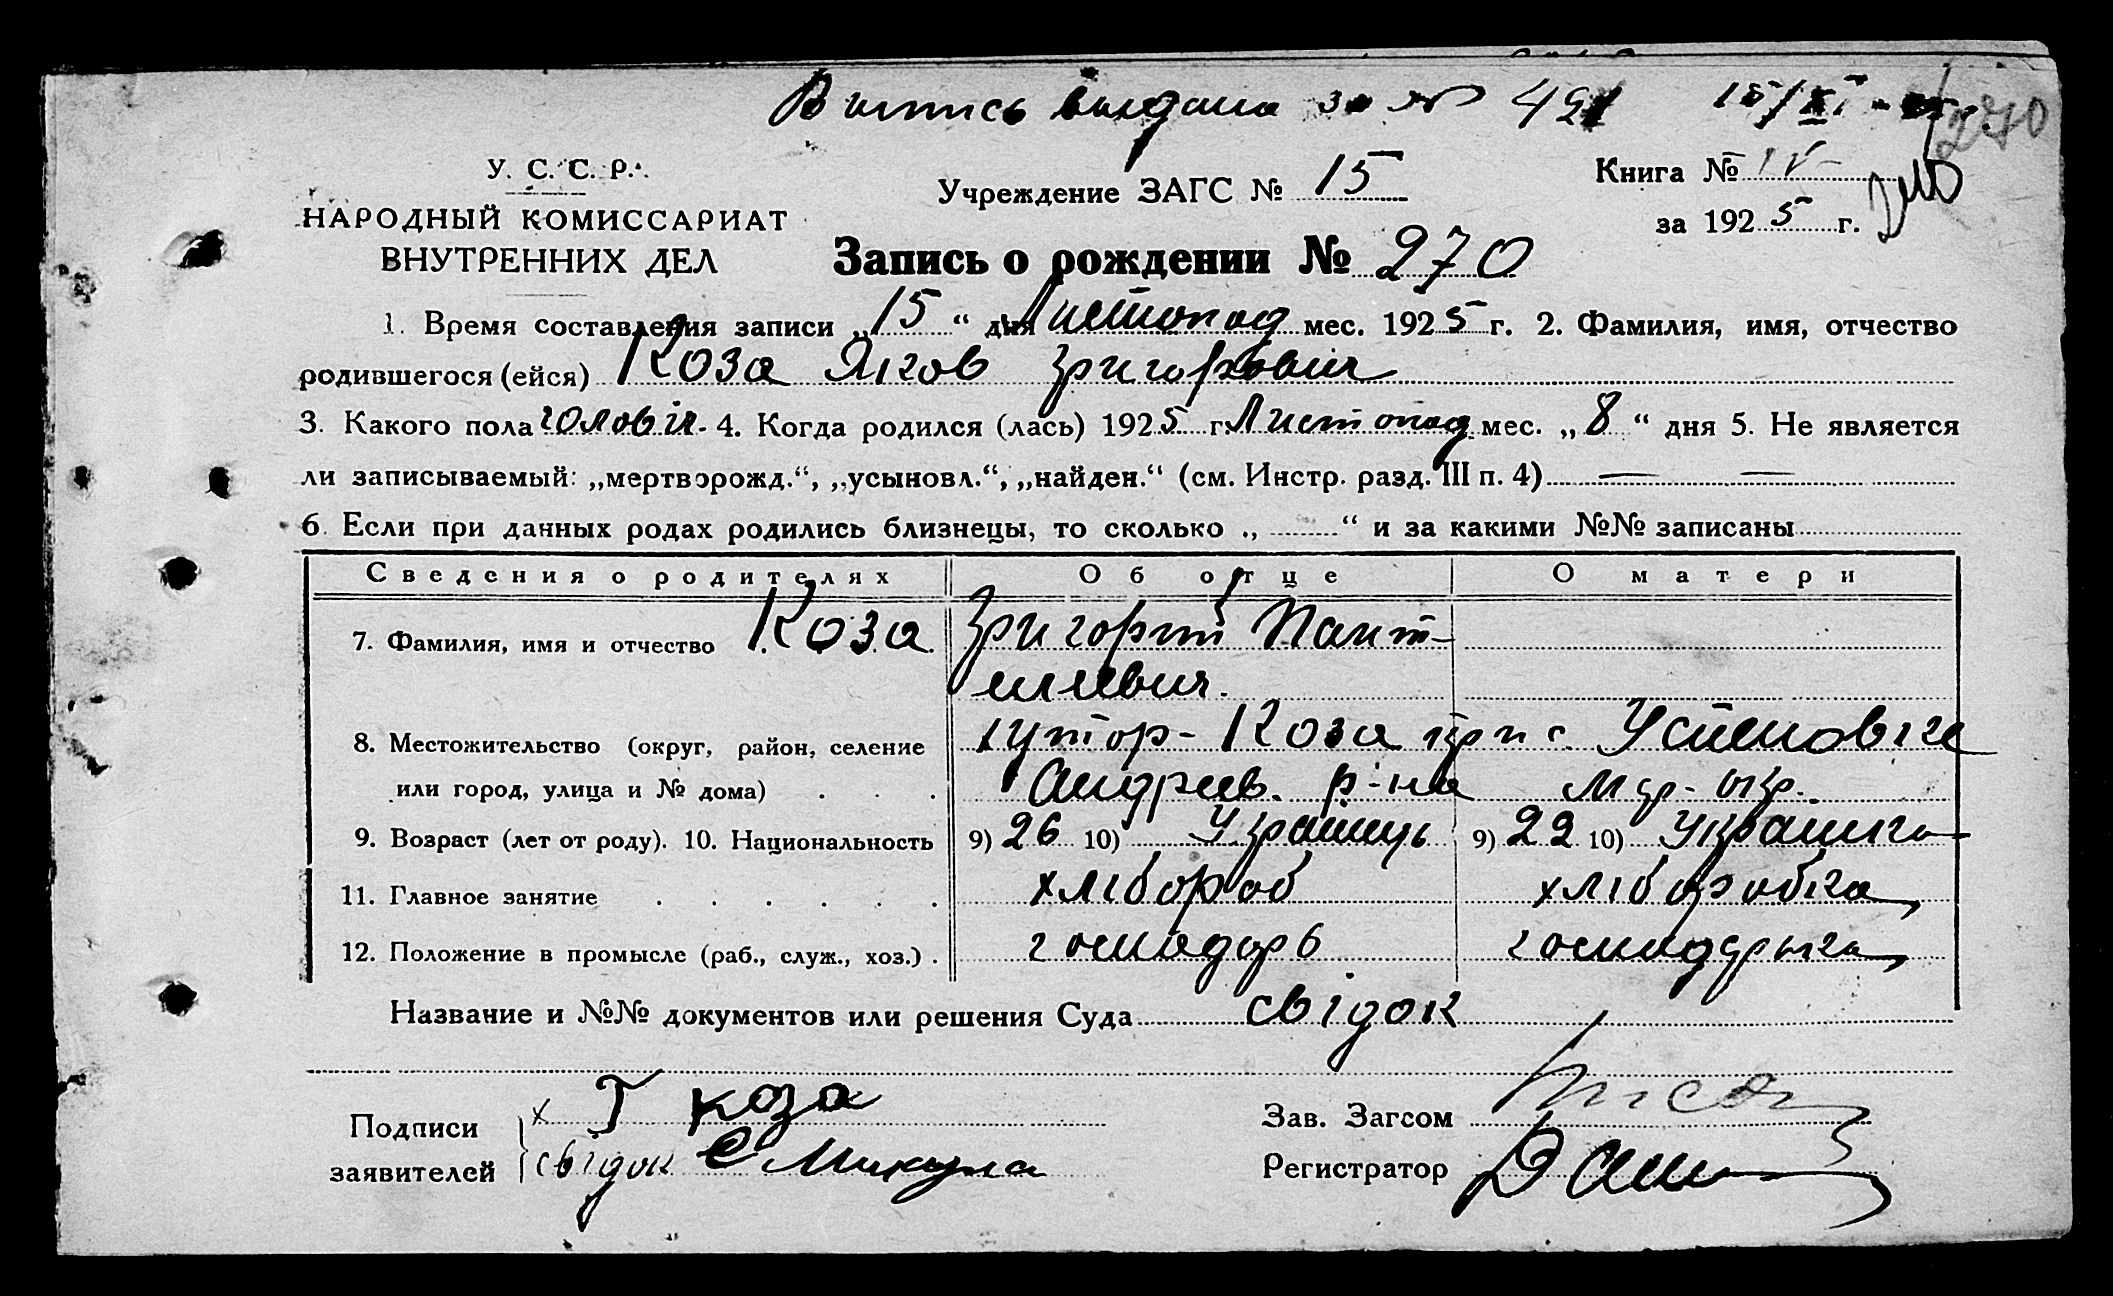 Витпись видана за № 491 15/XI 270
У. С. С. Р.
НАРОДНЫЙ КОМИССАРИАТ
ВНУТРЕННИХ ДЕЛ
Учреждение ЗАГС № 15
Книга № IV
за 1925 г.
Запись о рождении № 270
1. Время составления записи „15“ дня Листопад мес. 1925 г. 2. Фамилия, имя, отчество
родившегося (ейся) Коза Яков Григорович
3. Какого пола чоловіч. 4. Когда родился (лась) 1925 г. Листопад мес. „8“ дня 5. Не является
ли записываемый: „мертворожд.“, „усыновл.“, „найден.“ (см. Инстр. разд. III п. 4) — —
6. Если при данных родах родились близнецы, то сколько „ “ и за какими №№ записаны
Сведения о родителях Об отце О матери
7. Фамилия, имя и отчество Коза Григорій Пант-
илиевич.
8. Местожительство (округ, район, селение хутор-Коза при с. Устиновка
или город, улица и № дома) Андреев. р-на окр.
9. Возраст (лет от роду). 10. Национальность 9) 26 10) Українець 9) 22 10) Українка
11. Главное занятие хлібороб хліборобка
12. Положение в промысле (раб., служ., хоз.) господарь господарька
Название и №№ документов или решения Суда свідок
Подписи х Г Коза
заявителей свідок С Микула
Зав. Загсом
Регистратор